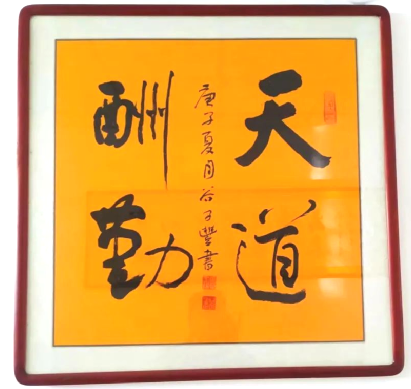 天道
酬勤
庚子夏月谷子豐書